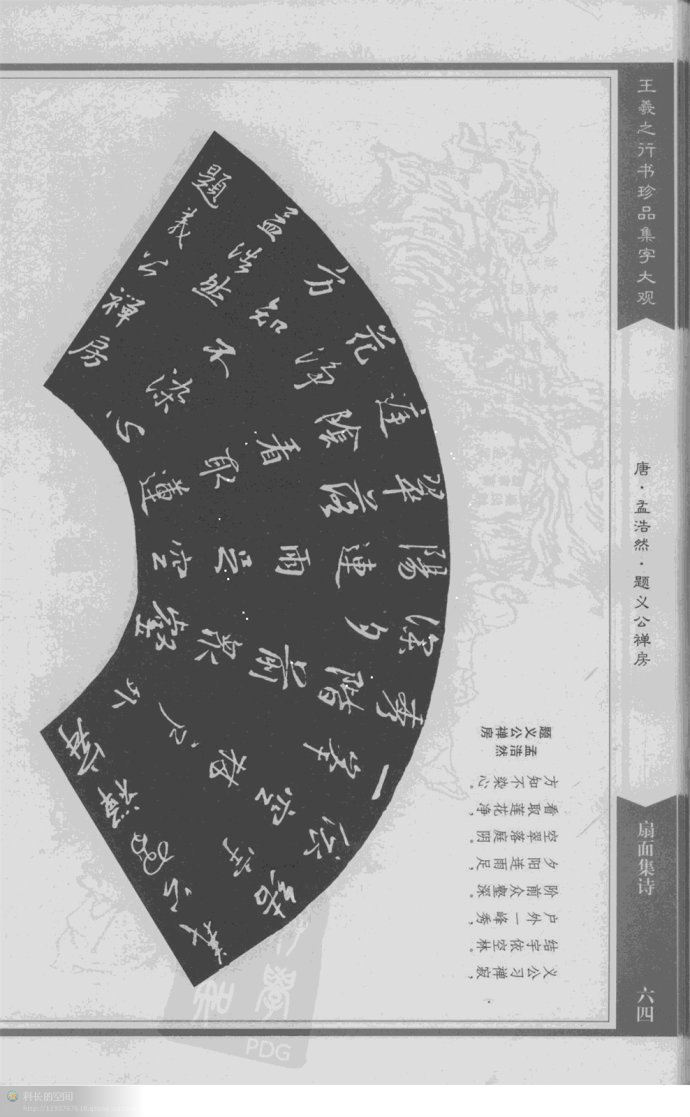 王羲之行书珍品集字大观
唐·孟浩然·题义公禅房
扇面集诗
六四
義公習禪寂
結宇
依空林戶外
一峯
秀階前衆壑
深夕
陽連雨足空
翠落
庭陰看取蓮
花淨
方知不染心
孟浩然
題義公禪房
题义公禅房
孟浩然
义公习禅寂，
结宇依空林。
户外一峰秀，
阶前众壑深。
夕阳连雨足，
空翠落庭阴。
看取莲花净，
方知不染心。
PDG
科长的空间